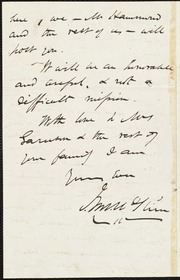 here, we – Mr Hammond
and the rest of us – will
post you.
It will be an honorable
and useful, & not a
difficult mission.
With love to Mrs
Garrison & the rest of
your family I am
Yours ever